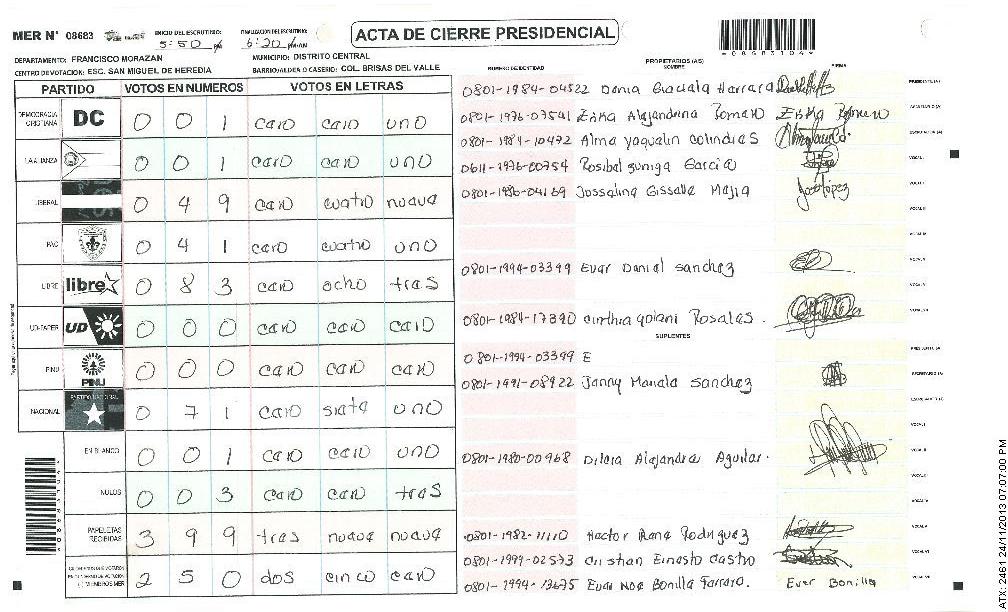 MER N° 08683
INICIO DEL ESCRUTINIO:
5:50 PM
FINALIZACION DEL ESCRUTINIO:
6:20 PM/AM
ACTA DE CIERRE PRESIDENCIAL
DEPARTAMENTO: FRANCISCO MORAZAN
MUNICIPIO: DISTRITO CENTRAL
CENTRO DE VOTACION: ESC. SAN MIGUEL DE HEREDIA
BARRIO/ALDEA O CASERIO: COL. BRISAS DEL VALLE
PARTIDO VOTOS EN NUMEROS VOTOS EN LETRAS
DEMOCRACIA CRISTIANA DC 0 0 1 cero cero uno
LA ALIANZA 0 0 1 cero cero uno
LIBERAL 0 4 9 cero cuatro nueve
PAC 0 4 1 cero cuatro uno
LIBRE libre 0 8 3 cero ocho tres
UD-FAPER UD 0 0 0 cero cero cero
PINU PINU 0 0 0 cero cero cero
NACIONAL PARTIDO NACIONAL 0 7 1 cero siete uno
EN BLANCO 0 0 1 cero cero uno
NULOS 0 0 3 cero cero tres
PAPELETAS RECIBIDAS 3 9 9 tres nueve nueve
2 5 0 dos cinco cero
NUMERO DE IDENTIDAD
PROPIETARIOS (AS)
NOMBRE
FIRMA
0801-1984-04522 Denia Graciela Herrera
0801-1976-07541 Erika Alejandrina Romero Erika Romero
0801-1984-10472 Alma yaquelin colindres
0611-1976-00754 Rosibel zuniga Garcia
0801-1986-04169 Josselina Gisselle Mejia
0801-1994-03399 Ever Daniel Sanchez
0801-1984-17390 cinthia yoleni Rosales.
SUPLENTES
0801-1994-03399 E
0801-1991-08922 Jenny Mariela Sanchez
0801-1980-00968 Dilcia Alejandra Aguilar.
0801-1982-11110 Hector Rene Rodriguez
0801-1999-02573 cristian Ernesto Castro
0801-1994-13675 Ever Noe Bonilla Ferrera. Ever Bonilla
ATX: 2461 24/11/2013 07:07:00 PM